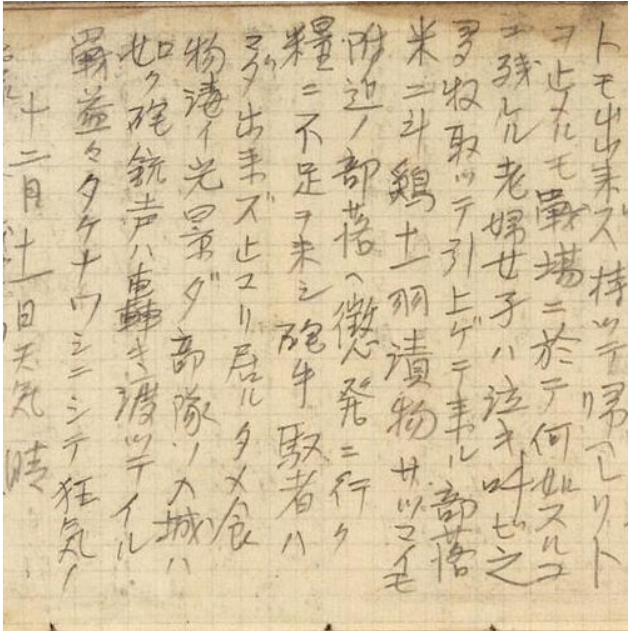 トモ出来ズ持ッテ帰ヘリト
ヲ止メルモ戰場ニ於テ何如スルコ
ニ残ル老婦女子ハ泣キ叫ビ之
多数取ッテ引上ゲテ来ル部落
米二斗鶏十一羽漬物サツマイモ
附近ノ部落ヘ徴発ニ行ク
糧ニ不足ヲ来シ砲牛馭者ハ
多ダ出来ズ止マリ居ルタメ食
物凄イ光景ダ部隊ソ入城ハ
如ク砲銃声ハ轟き渡ッテイル
戰益々タケナワシニシテ狂気ノ
十二月十一日天気晴